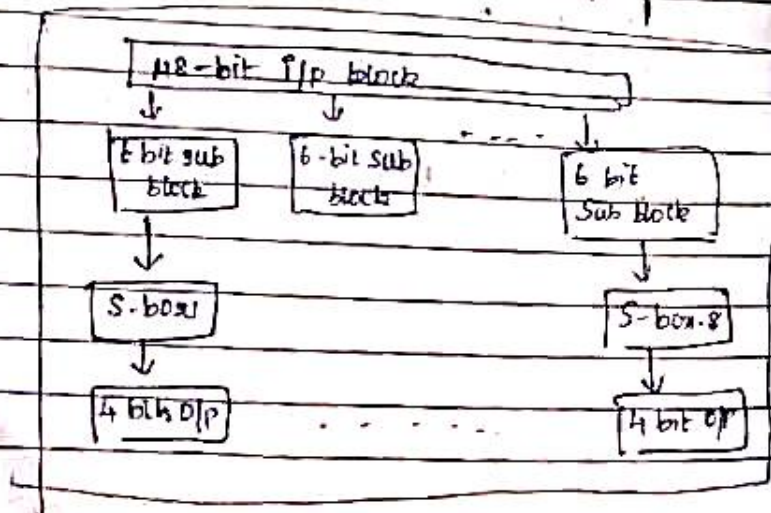 48-bit i/p block
6 bit sub
block
6-bit sub
block
6 bit
Sub block
S-box1
S-box-8
4 bits O/P
4 bit O/P